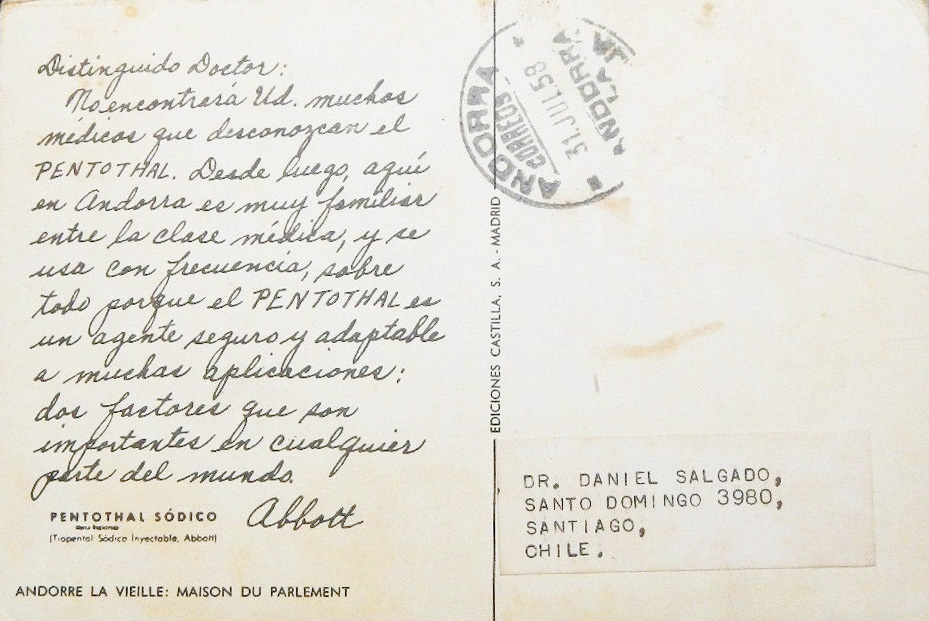 Distinguido Doctor:
No encontrará Ud. muchos
médicos que desconozcan el
PENTOTHAL. Desde luego, aquí
en Andorra es muy familiar
entre la clase médica, y se
usa con frecuencia, sobre
todo porque el PENTOTHAL es
un agente seguro y adaptable
a muchas aplicaciones:
dos factores que son
importantes en cualquier
parte del mundo.
Abbott
PENTOTHAL SÓDICO
Marca Registrada
(Tiopental Sódico Inyectable, Abbott)
ANDORRE LA VIEILLE: MAISON DU PARLEMENT
EDICIONES CASTILLA, S. A. - MADRID
ANDORRA
CORREOS
31.JUL58
ANDORRA
LA
DR. DANIEL SALGADO,
SANTO DOMINGO 3980,
SANTIAGO,
CHILE.